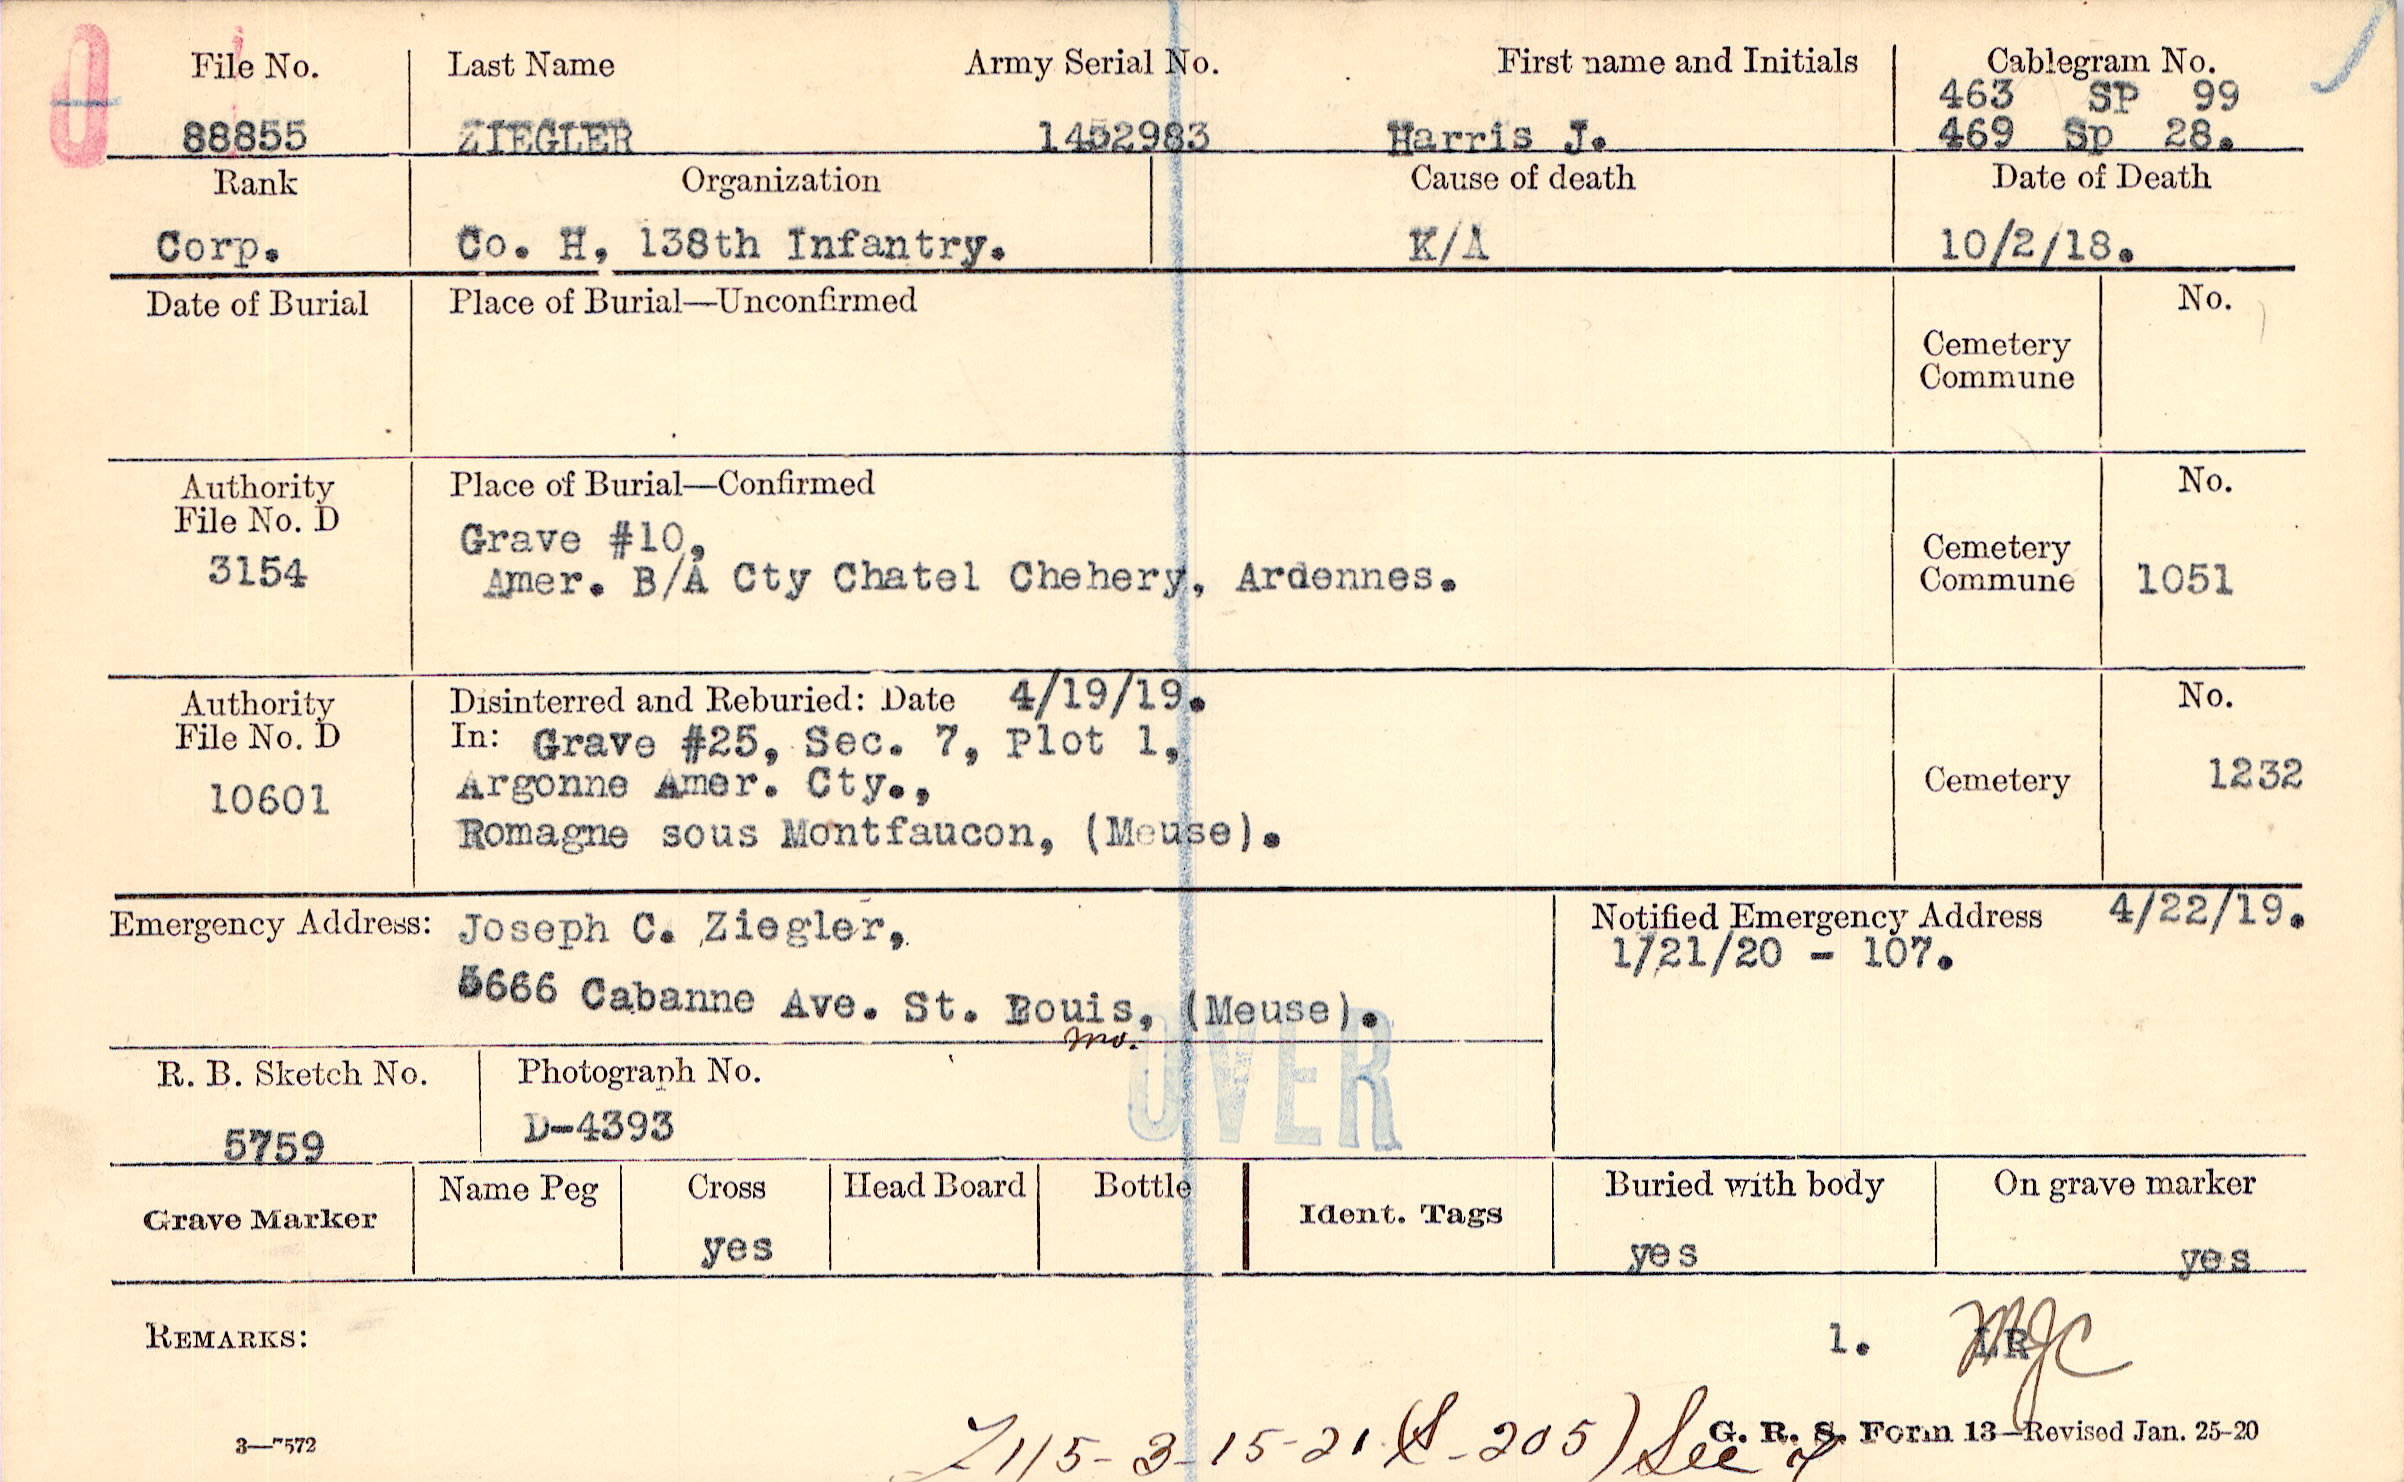 File No. Last Name Army Serial No. First name and Initials Cablegram No.
463 SP 99
88855 ZIEGLER 1452983 Harris J. 469 Sp 28.
Rank Organization Cause of death Date of Death
Corp. Co. H, 138th Infantry. K/A 10/2/18.
Date of Burial Place of Burial—Unconfirmed No.
Cemetery
Commune
Authority Place of Burial—Confirmed No.
File No. D
3154
Grave #10,
Amer. B/A Cty Chatel Chehery, Ardennes.
Cemetery
Commune 1051
Authority Disinterred and Reburied: Date 4/19/19. No.
File No. D In: Grave #25, Sec. 7, Plot 1,
10601 Argonne Amer. Cty., Cemetery 1232
Romagne sous Montfaucon, (Meuse).
Emergency Address: Joseph C. Ziegler,
5666 Cabanne Ave. St. Bouis, (Meuse).
Mo.
Notified Emergency Address 4/22/19.
1/21/20 - 107.
OVER
R. B. Sketch No. Photograph No.
5759 D-4393
Grave Marker Name Peg Cross Head Board Bottle Ident. Tags Buried with body On grave marker
yes yes yes
REMARKS: 1. LR
MJC
3—7572 G. R. S. Form 13—Revised Jan. 25-20
3-15-21 (S-205) See